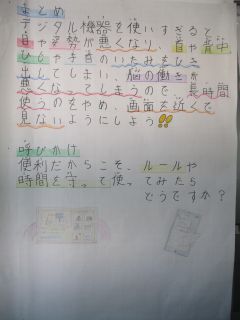 まとめ
デジタル機器を使いすぎると
目や姿勢が悪くなり、首や背中
ひじや手首のいたみをひき
出してしまい、脳の働きが
悪くなってしまうので、長時間
使うのをやめ、画面を近くで
見ないようにしよう!!
呼びかけ
便利だからこそ、ルールや
時間を守って使ってみたら
どうですか?